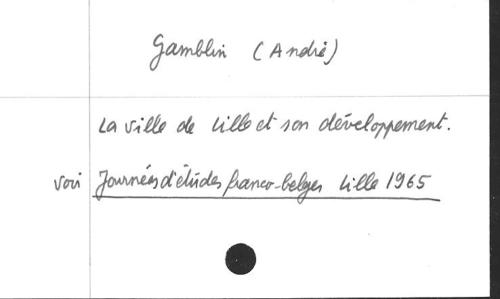 Gamblin (André)
La ville de Lille et son développement.
voir Journées d'études franco-belges Lille 1965